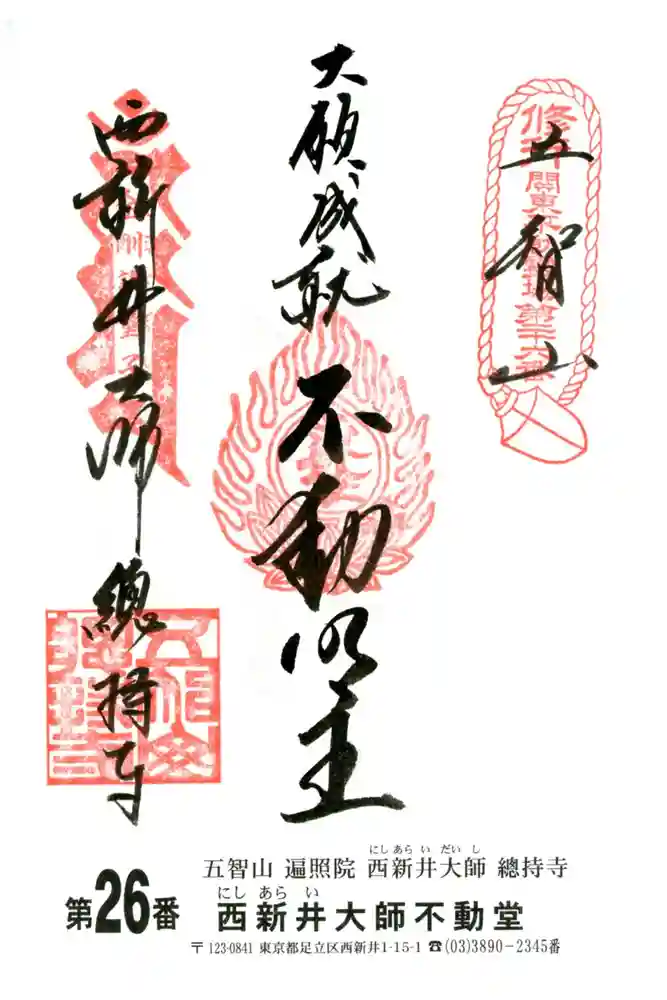 五智山
大願成就
不動明王
西新井大師
總持寺
五智山 遍照院 西新井大師 總持寺
にし あら い だい し
第26番
西新井大師不動堂
にし あら い
〒123-0841 東京都足立区西新井1-15-1 ☎(03)3890-2345番